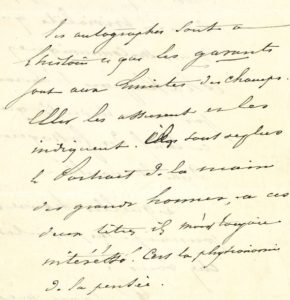 Les autographes sont à
l'histoire ce que les garants
sont aux limites des champs.
Elles les attestent et les
indiquent. sont
le Portrait de la main
des grands hommes, à ces
deux titres ils m'ont toujours
intéréssé. C'est la physionomie
de la pensée.